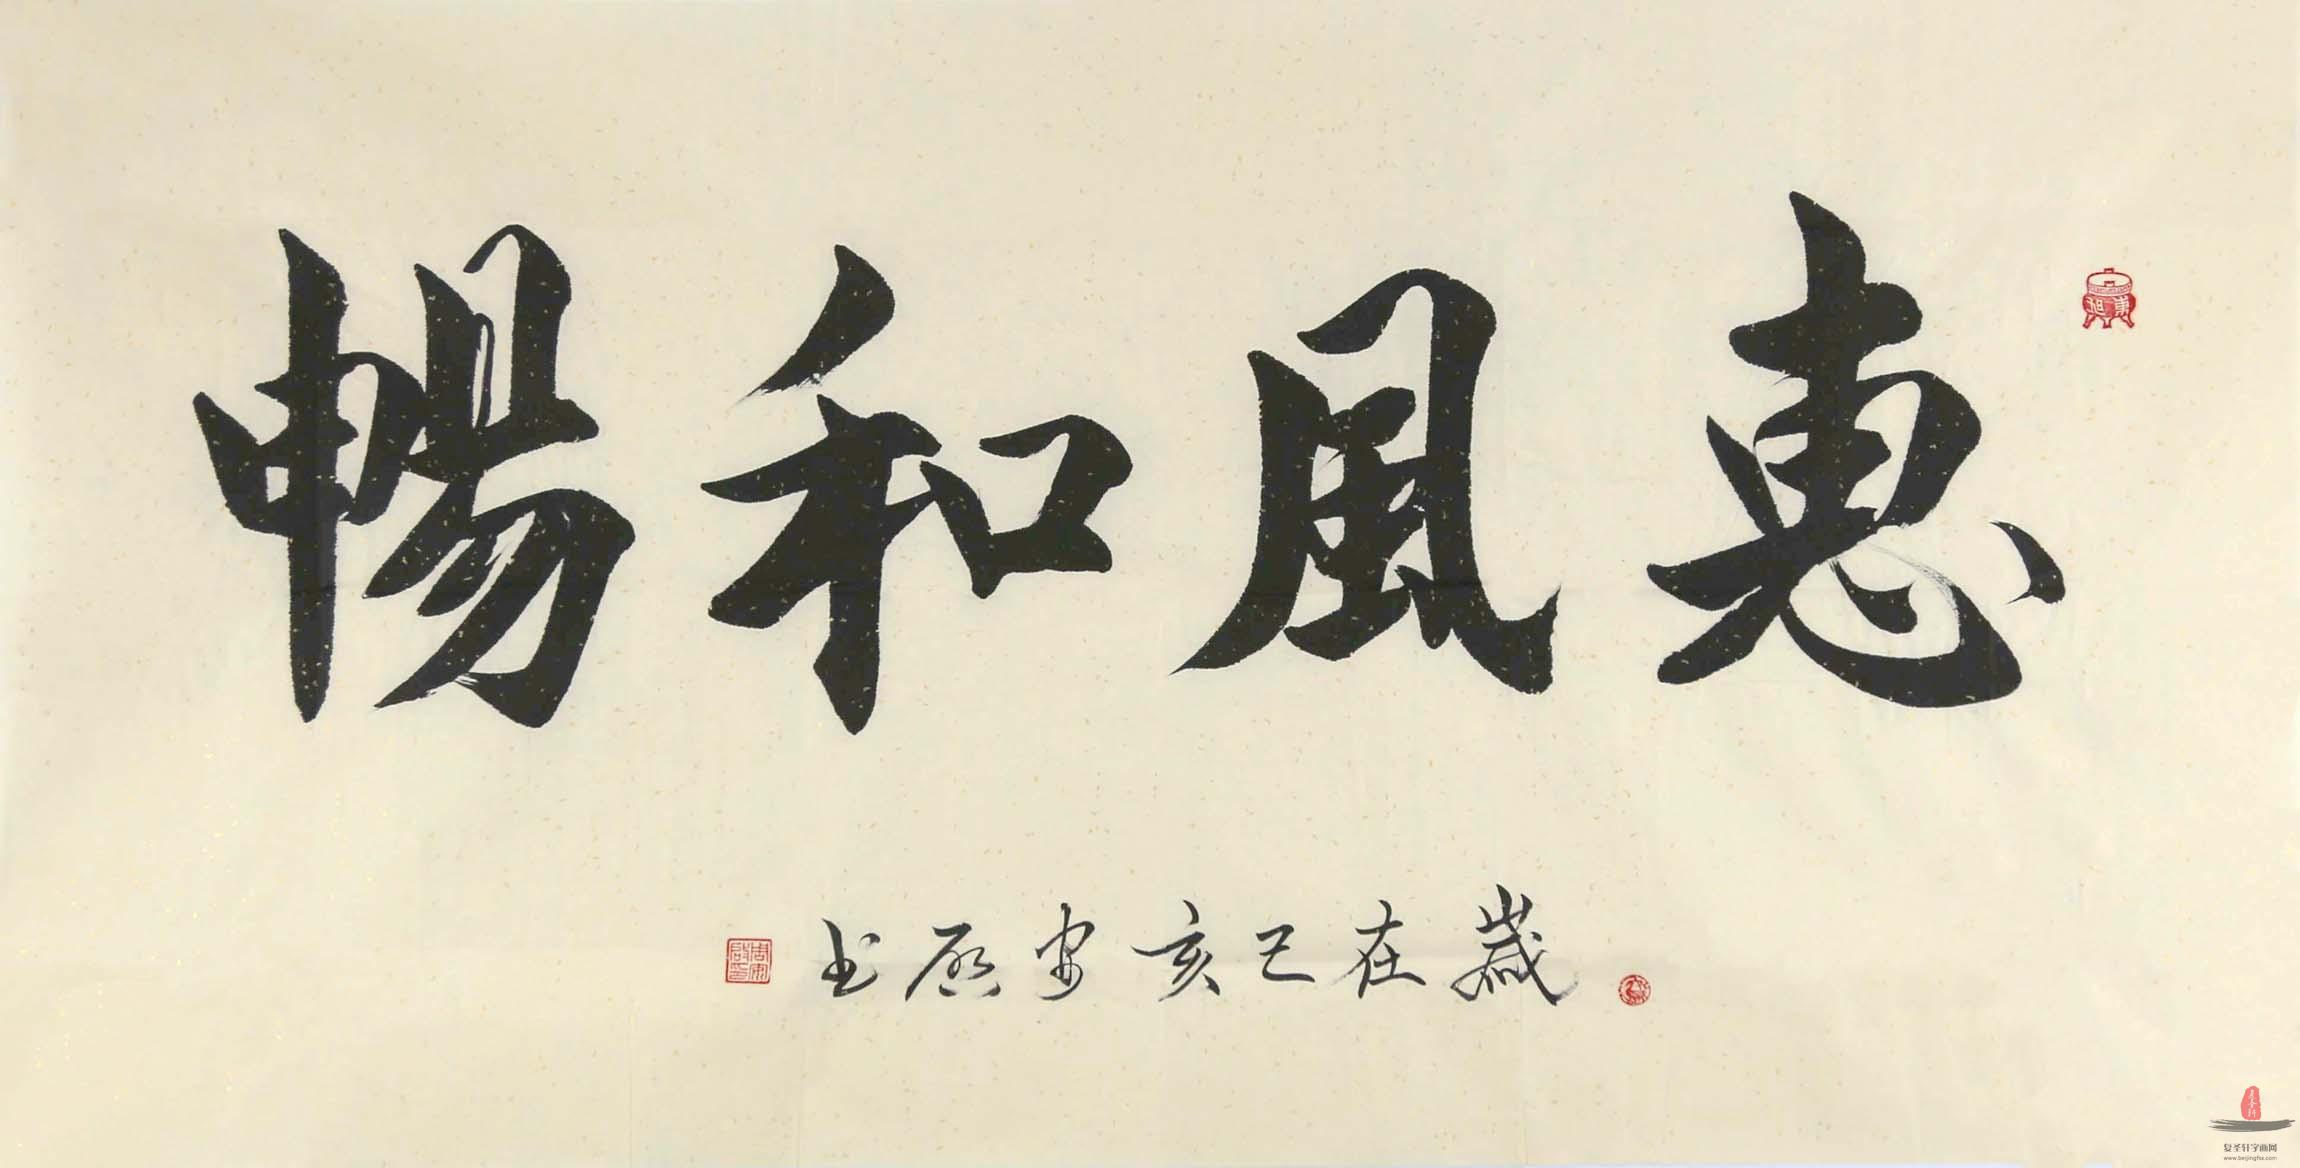 惠風和暢
歲在己亥安啟书
复圣轩字画网
www.beijingfsx.com